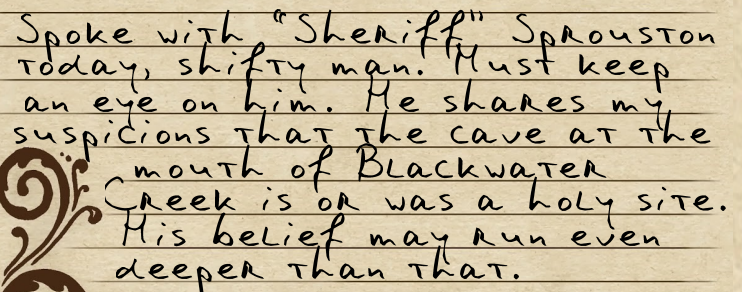 Spoke with "Sheriff" Sprouston
today, shifty man. Must keep
an eye on him. He shares my
suspicions that the cave at the
mouth of Blackwater
Creek is or was a holy site.
His belief may run even
deeper than that.